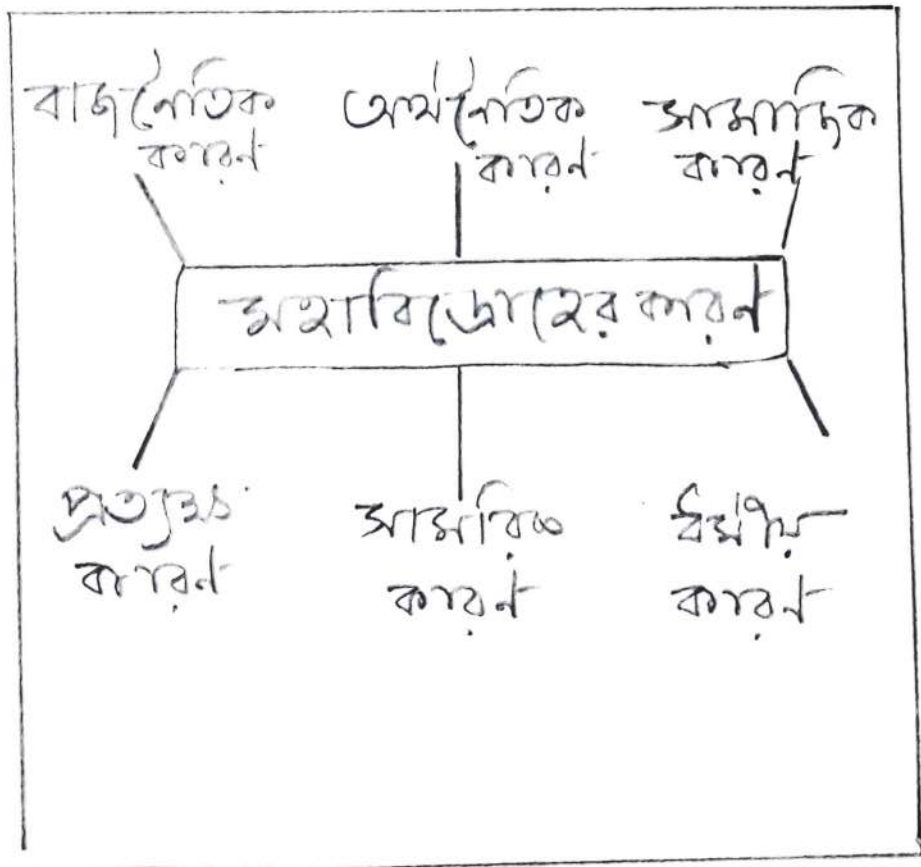 রাজনৈতিক
কারণ
অর্থনৈতিক
কারণ
সামাজিক
কারণ
মহাবিদ্রোহের কারণ
প্রত্যক্ষ
কারণ
সামরিক
কারণ
ধর্মীয়
কারণ